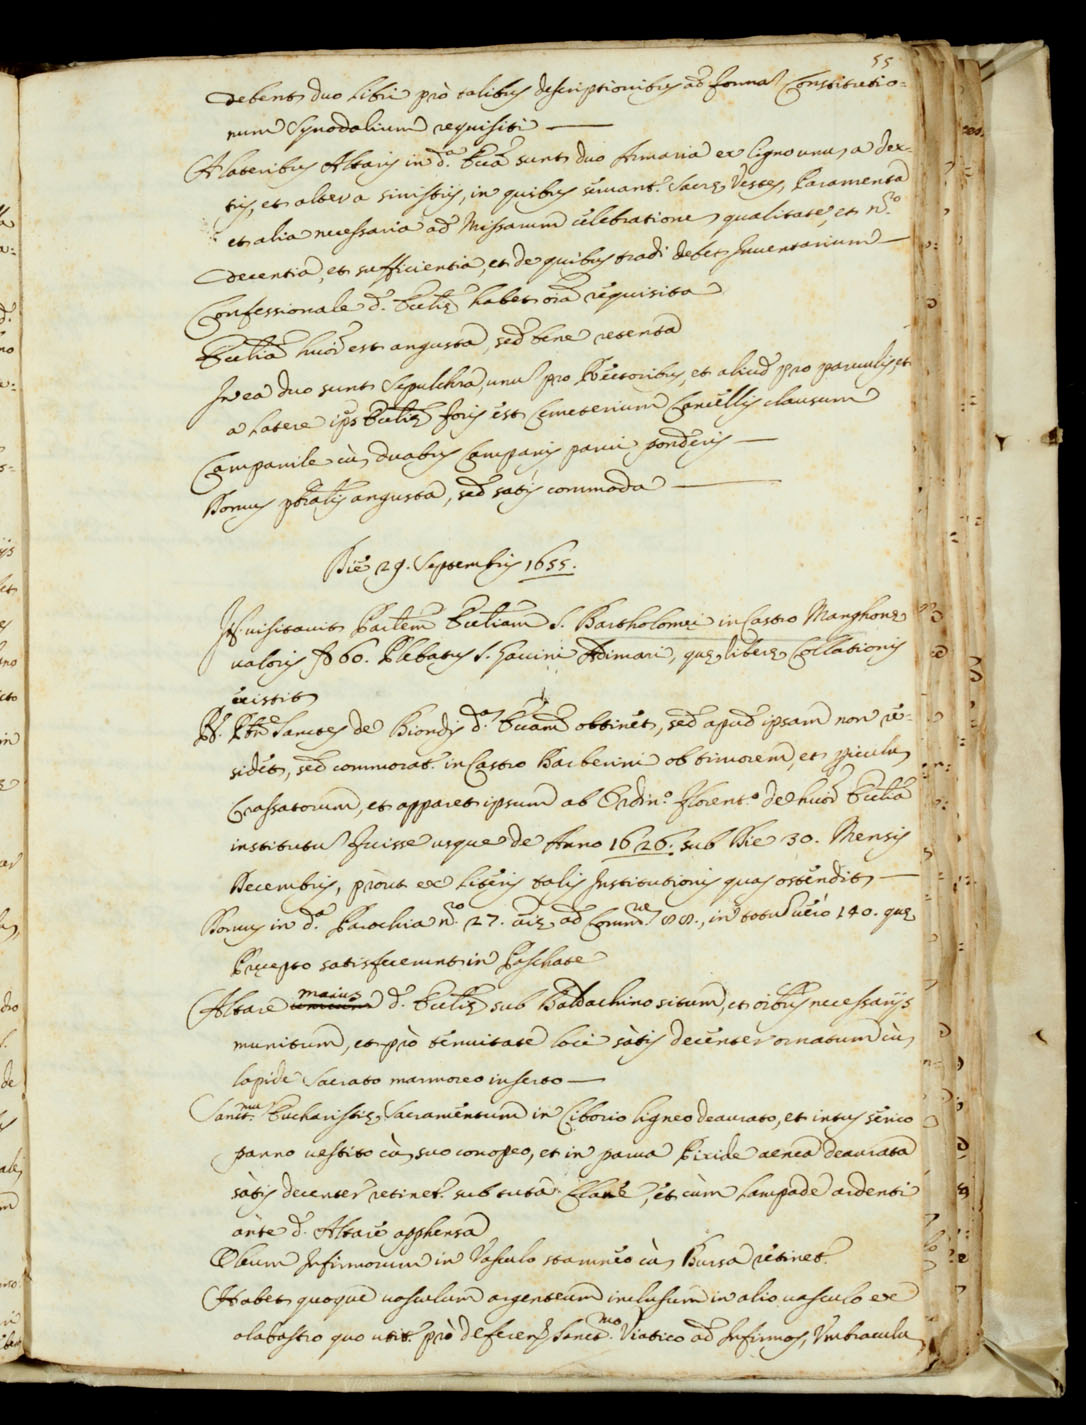 55
debent duo libri prò talibus descriptionibus ad formã Constitutio=
num Synodalium requisiti —
A lateribus Altaris in d.ª Ecciã sunt duo Armaria ex ligno unũ a dex-
tris, et alter a sinistris, in quibus servant.r Sacrę Vestes, Paramenta
et alia necessaria ad Missarum celebrationẽ, qualitate, et n.ro
decentia, et sufficientia, et de quibus tradi debet Inventarium —
Confessionale d. Ecclię habet oĩa requisita
Ecclia huiõi est angusta, sed bene retenta
In ea duo sunt Sepulchra, unũ pro Rectoribus, et aliud pro parvulis, et
a latere ips Ecclię foris est Cemeterium Cancellis clausum
Campanile cũ duabus Campanis parvi ponderis —
Domus pbralis angusta, sed satis commoda —
Die 29. Septembris 1655.
visitavit Parlem Eccliam S. Bartholomei in Castro Manghonę
valoris 60. Plebatus S. Gavini Adimari, quę liberę Collationis
existit
R. Pbr Santes de Biondis d.ª Ecciam obtinet, sed apud ipsam non re-
sidet, sed commorat.r in Castro Barberini ob timorem, et picula
Grassatorum, et apparet ipsum ab Ordin.o Florent.o de huiõi Ecclia
institutũ fuisse usque de Anno 1626. sub Die 30. Mensis
Decembris, prout ex literis talis Institutionis quas ostendit —
Domus in d.ª Parochia n.ro 27. aię ad Comm.ne 88., in totũ verò 140. quę
Pręcepto satisfecerunt in Paschate
Altare maius d. Ecclię sub Baldachino situm, et oĩbus necessarijs
munitum, et prò tenuitate loci sàtis decenter ornatum cũ
lapide Sacrato marmoreo inserto —
Sanct.mũ Eucharistię Sacramentum in Ciborio ligneo deaurato, et intus serico
panno vestito cũ suo conopeo, et in parva Pixide aenea deaurata
sàtis decenter retinet.r sub tuta Clave, et cùm lampade ardenti
ànte d. Altare appensa
Oleum Infirmorum in Vasculo stamneo cũ Bursa retinet.r
Habet quoque vasculum argenteum inclusum in alio vasculo ex
alabastro quo utit.r prò deferen̄ Sanct.mo Viatico ad Infirmos, Umbracula